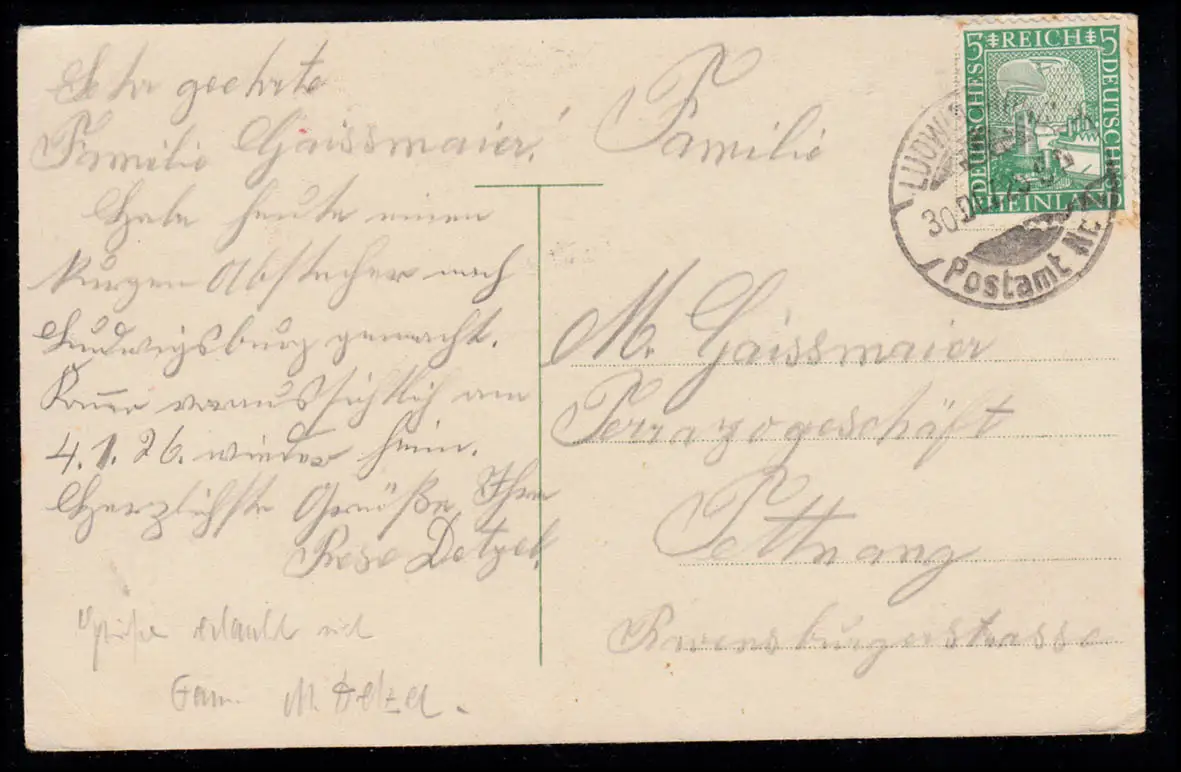 Sehr geehrte
Familie Gaissmaier!
Habe heute einen
kurzen Abstecher nach
Ludwigsburg gemacht.
Komme voraussichtlich am
4.1.26. wieder heim.
Herzlichste Grüße, Ihre
Rose Detzel.
Grüße erlaubt sich
Fam. M. Detzel.
Familie
M. Gaissmaier
Terrazogeschäft
Tettnang
Ravensburgerstrasse
5 REICH 5
DEUTSCHES
DEUTSCHES
RHEINLAND
LUDWIGSBURG
30.DEZ.25
Postamt Nr.